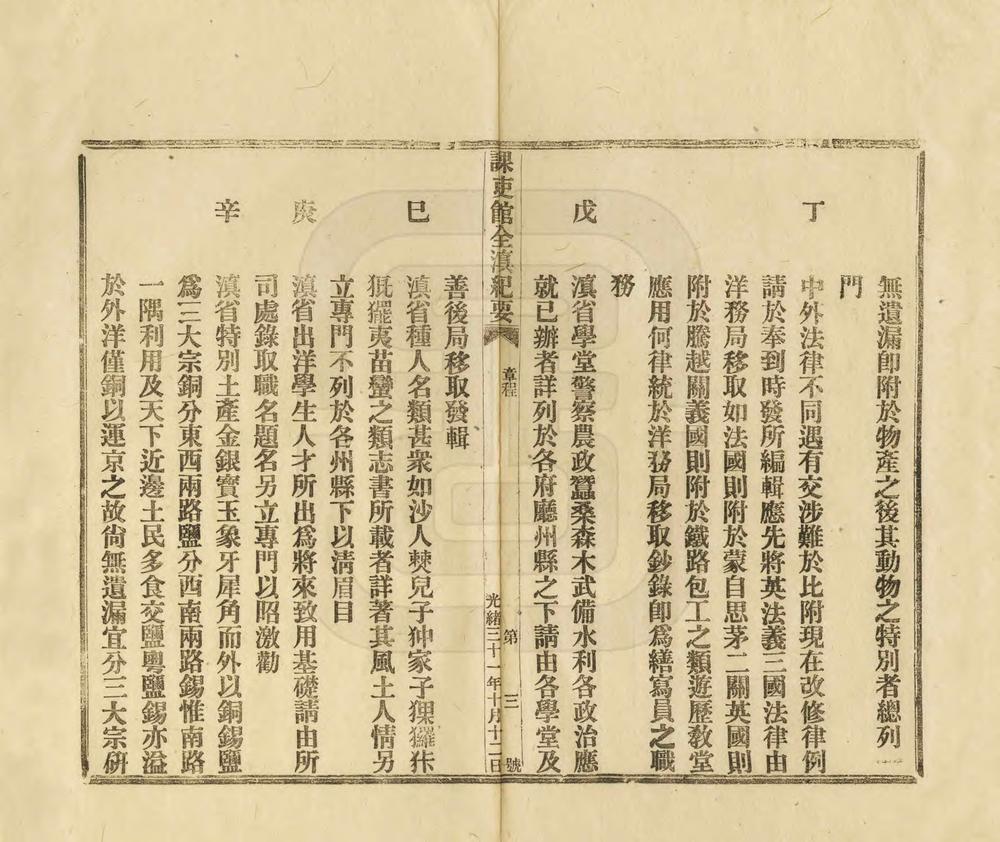 無遺漏即附於物產之後其動物之特別者總列一
門
丁
中外法律不同遇有交涉難於比附現在改修律例
請於奉到時發所編輯應先將英法義三國法律由
洋務局移取如法國則附於蒙自思茅二關英國則
附於騰越關義國則附於鐵路包工之類遊歷教堂
應用何律統於洋務局移取鈔錄即為繕寫員之職
務
戊
滇省學堂警察農政蠶桑森木武備水利各政治應
就已辦者詳列於各府廳州縣之下請由各學堂及
課吏館全滇紀要
章程
第三號
光緒三十一年十月十二日
善後局移取發輯
巳
滇省種人名類甚衆如沙人僰兒子狆家子猓玀
猓夷苗蠻之類志書所載者詳著其風土人情另
立專門不列於各州縣下以清眉目
庚
滇省出洋學生人才所出為將來致用基礎請由所
司處錄取職名題名另立專門以昭激勸
辛
滇省特別土產金銀寶玉象牙犀角而外以銅錫鹽
為三大宗銅分東西兩路鹽分西南兩路錫惟南路
一隅利用及天下近邊土民多食交鹽粵鹽錫亦溢
於外洋僅銅以運京之故尚無遺漏宜分三大宗研